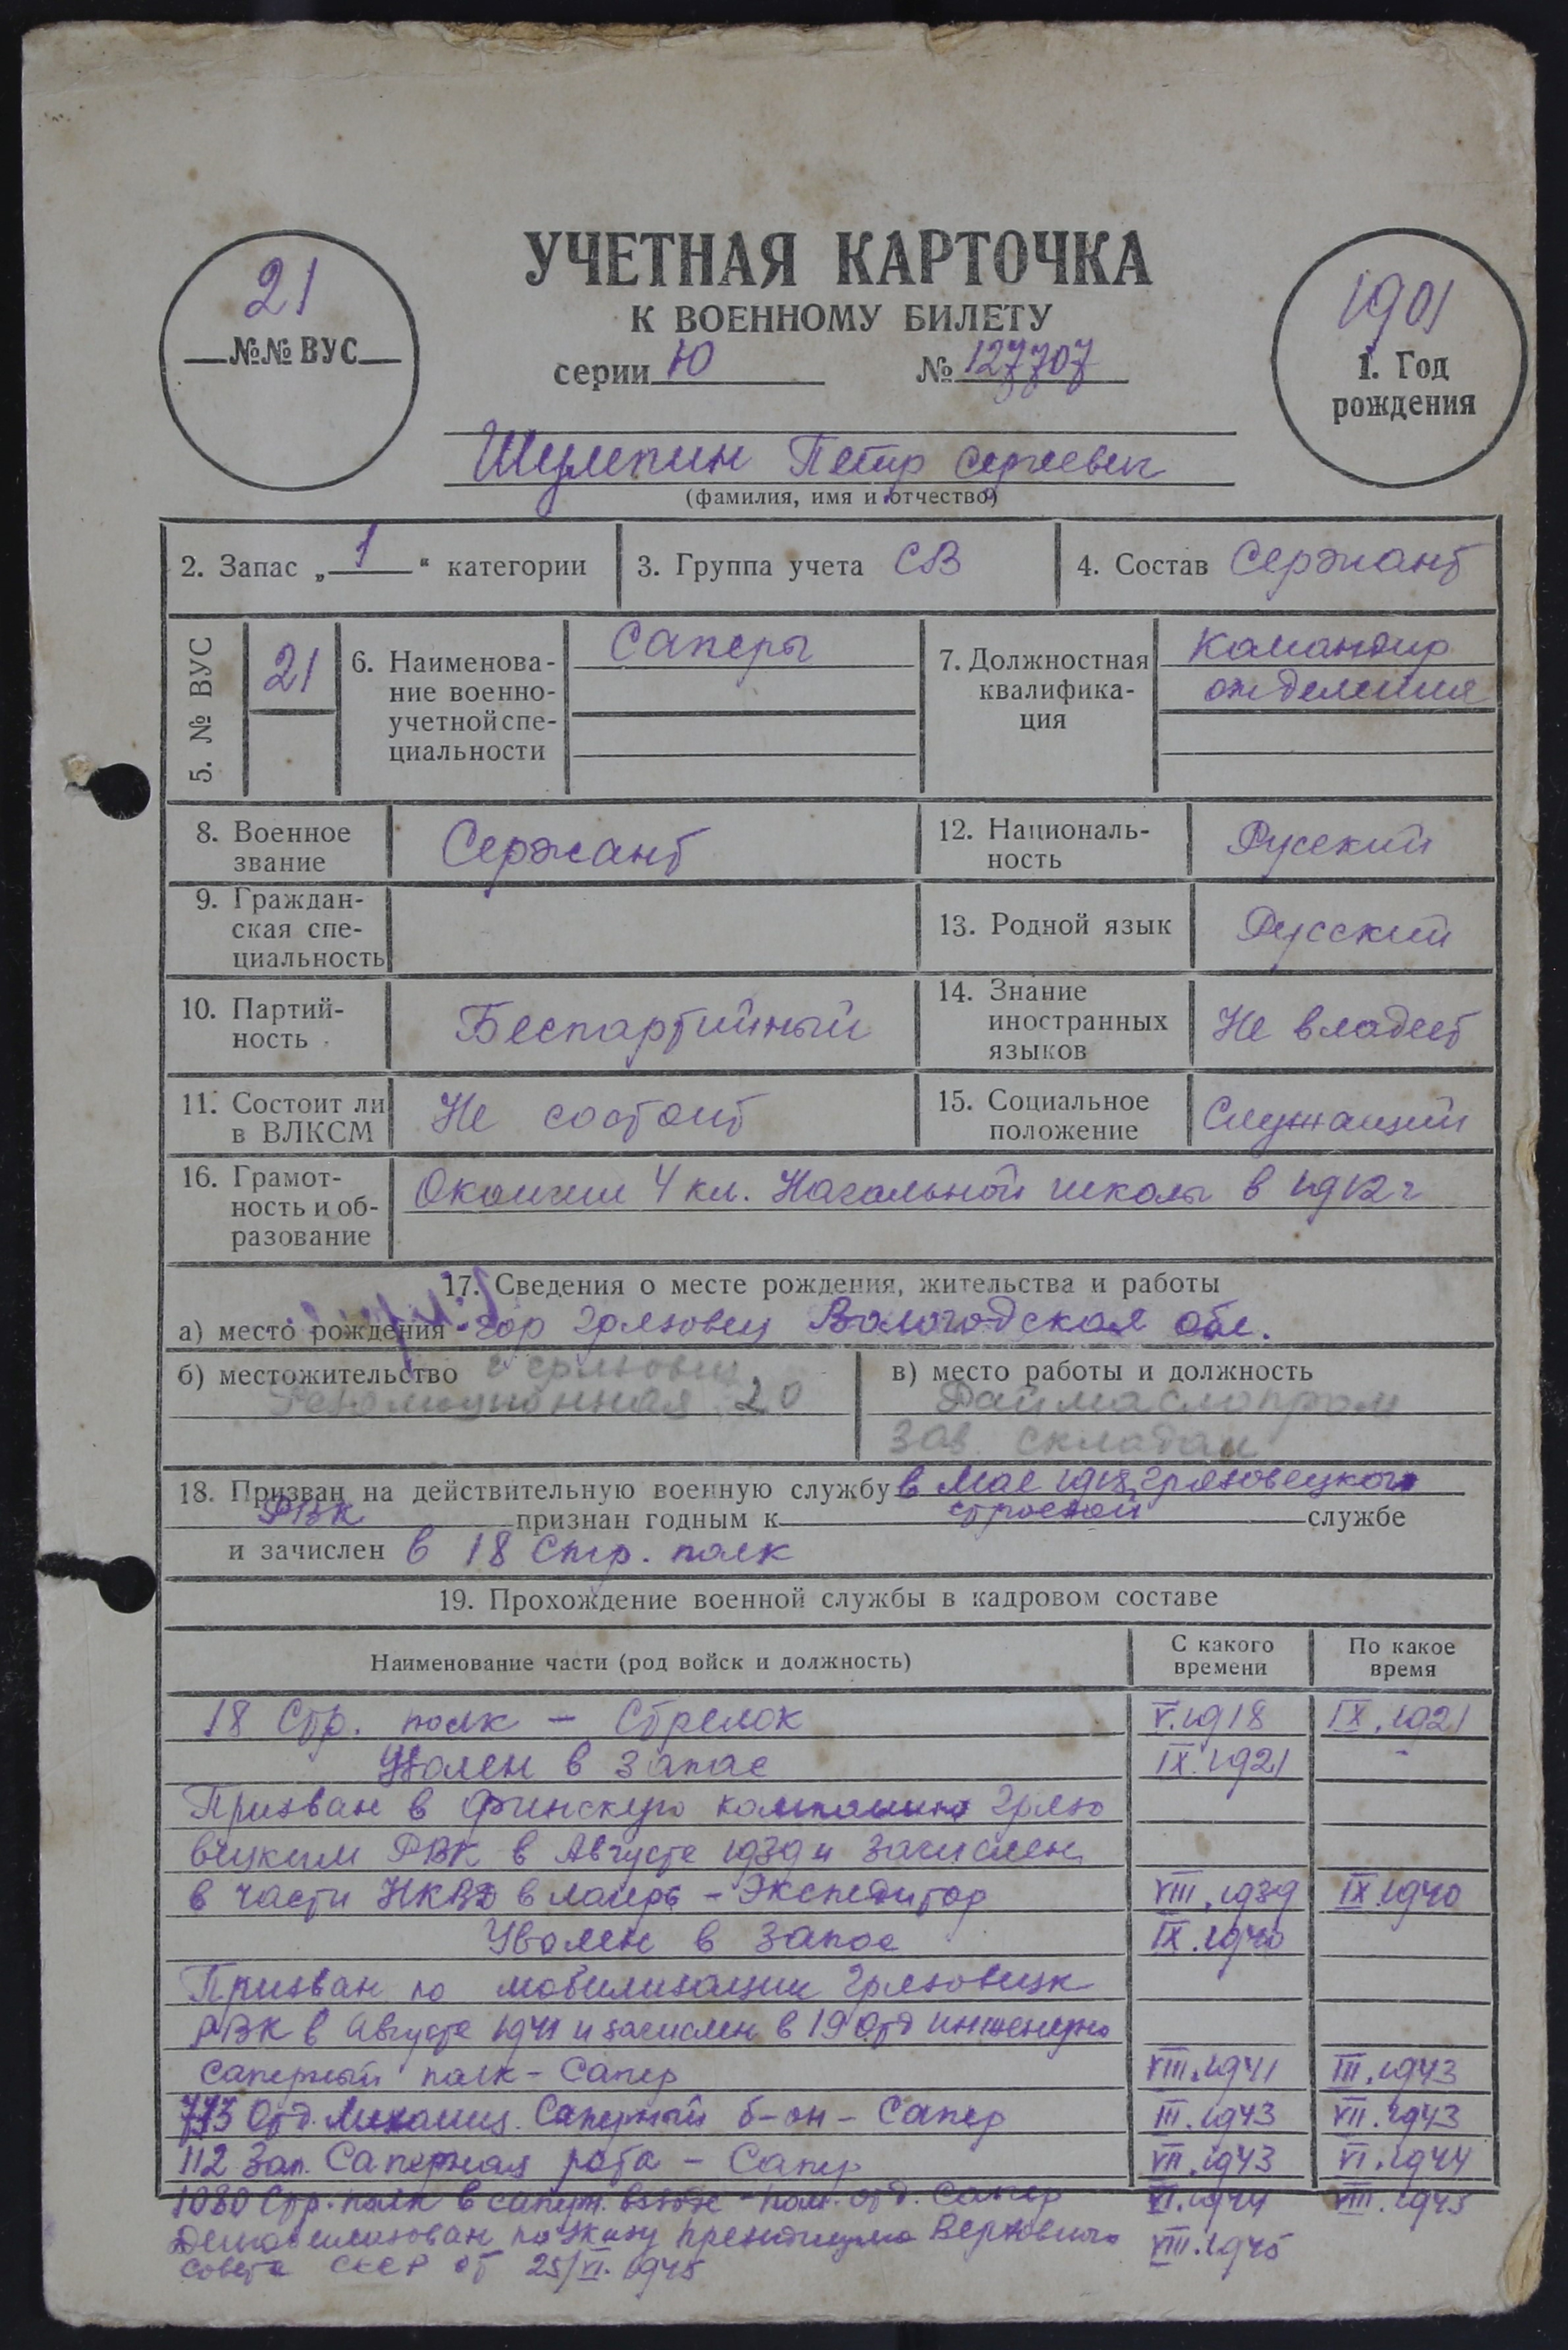 УЧЕТНАЯ КАРТОЧКА
К ВОЕННОМУ БИЛЕТУ
серии Ю № 127707
21
№№ ВУС
1901
1. Год
рождения
Шулепин Петр Сергеевич
(фамилия, имя и отчество)
2. Запас „1“ категории
3. Группа учета СВ
4. Состав Сержант
5. № ВУС
21
6. Наименова-
ние военно-
учетной спе-
циальности
Саперы
7. Должностная
квалифика-
ция
Командир
отделения
8. Военное
звание
Сержант
12. Националь-
ность
Русский
9. Граждан-
ская спе-
циальность
13. Родной язык
Русский
10. Партий-
ность
Беспартийный
14. Знание
иностранных
языков
Не владеет
11. Состоит ли
в ВЛКСМ
Не состоит
15. Социальное
положение
Служащий
16. Грамот-
ность и об-
разование
Окончил 4 кл. Начальной школы в 1912 г
17. Сведения о месте рождения, жительства и работы
а) место рождения гор Грязовец Вологодская обл.
б) местожительство г Грязовец
Революционная 20
в) место работы и должность
Раймаслопром
Зав. складом
18. Призван на действительную военную службу в Мае 1918 Грязовецкого
РВК признан годным к строевой службе
и зачислен в 18 Стр. полк
19. Прохождение военной службы в кадровом составе
Наименование части (род войск и должность)
С какого
времени
По какое
время
18 Стр. полк – Стрелок V.1918 IX.1921
Уволен в запас IX.1921 -
Призван в финскую компанию Грязо
вецким РВК в Августе 1939 и зачислен
в части НКВД в лагерь – Экспедитор VIII.1939 IX.1940
Уволен в запас IX.1940
Призван по мобилизации Грязовецк
РВК в Августе 1941 и зачислен в 19 Отд инженерно
саперный полк – Сапер VIII.1941 III.1943
Отд. Механиз. Саперный б-он – Сапер III.1943 VII.1943
112 Зап. Саперная рота – Сапер VII.1943 VI.1944
1080 Стр. полк в саперн. взводе – пом. отд. Сапер VI.1944 VIII.1945
Демобилизован по Указу президиума Верховного VIII.1945
Совета СССР от 25/VI.1945